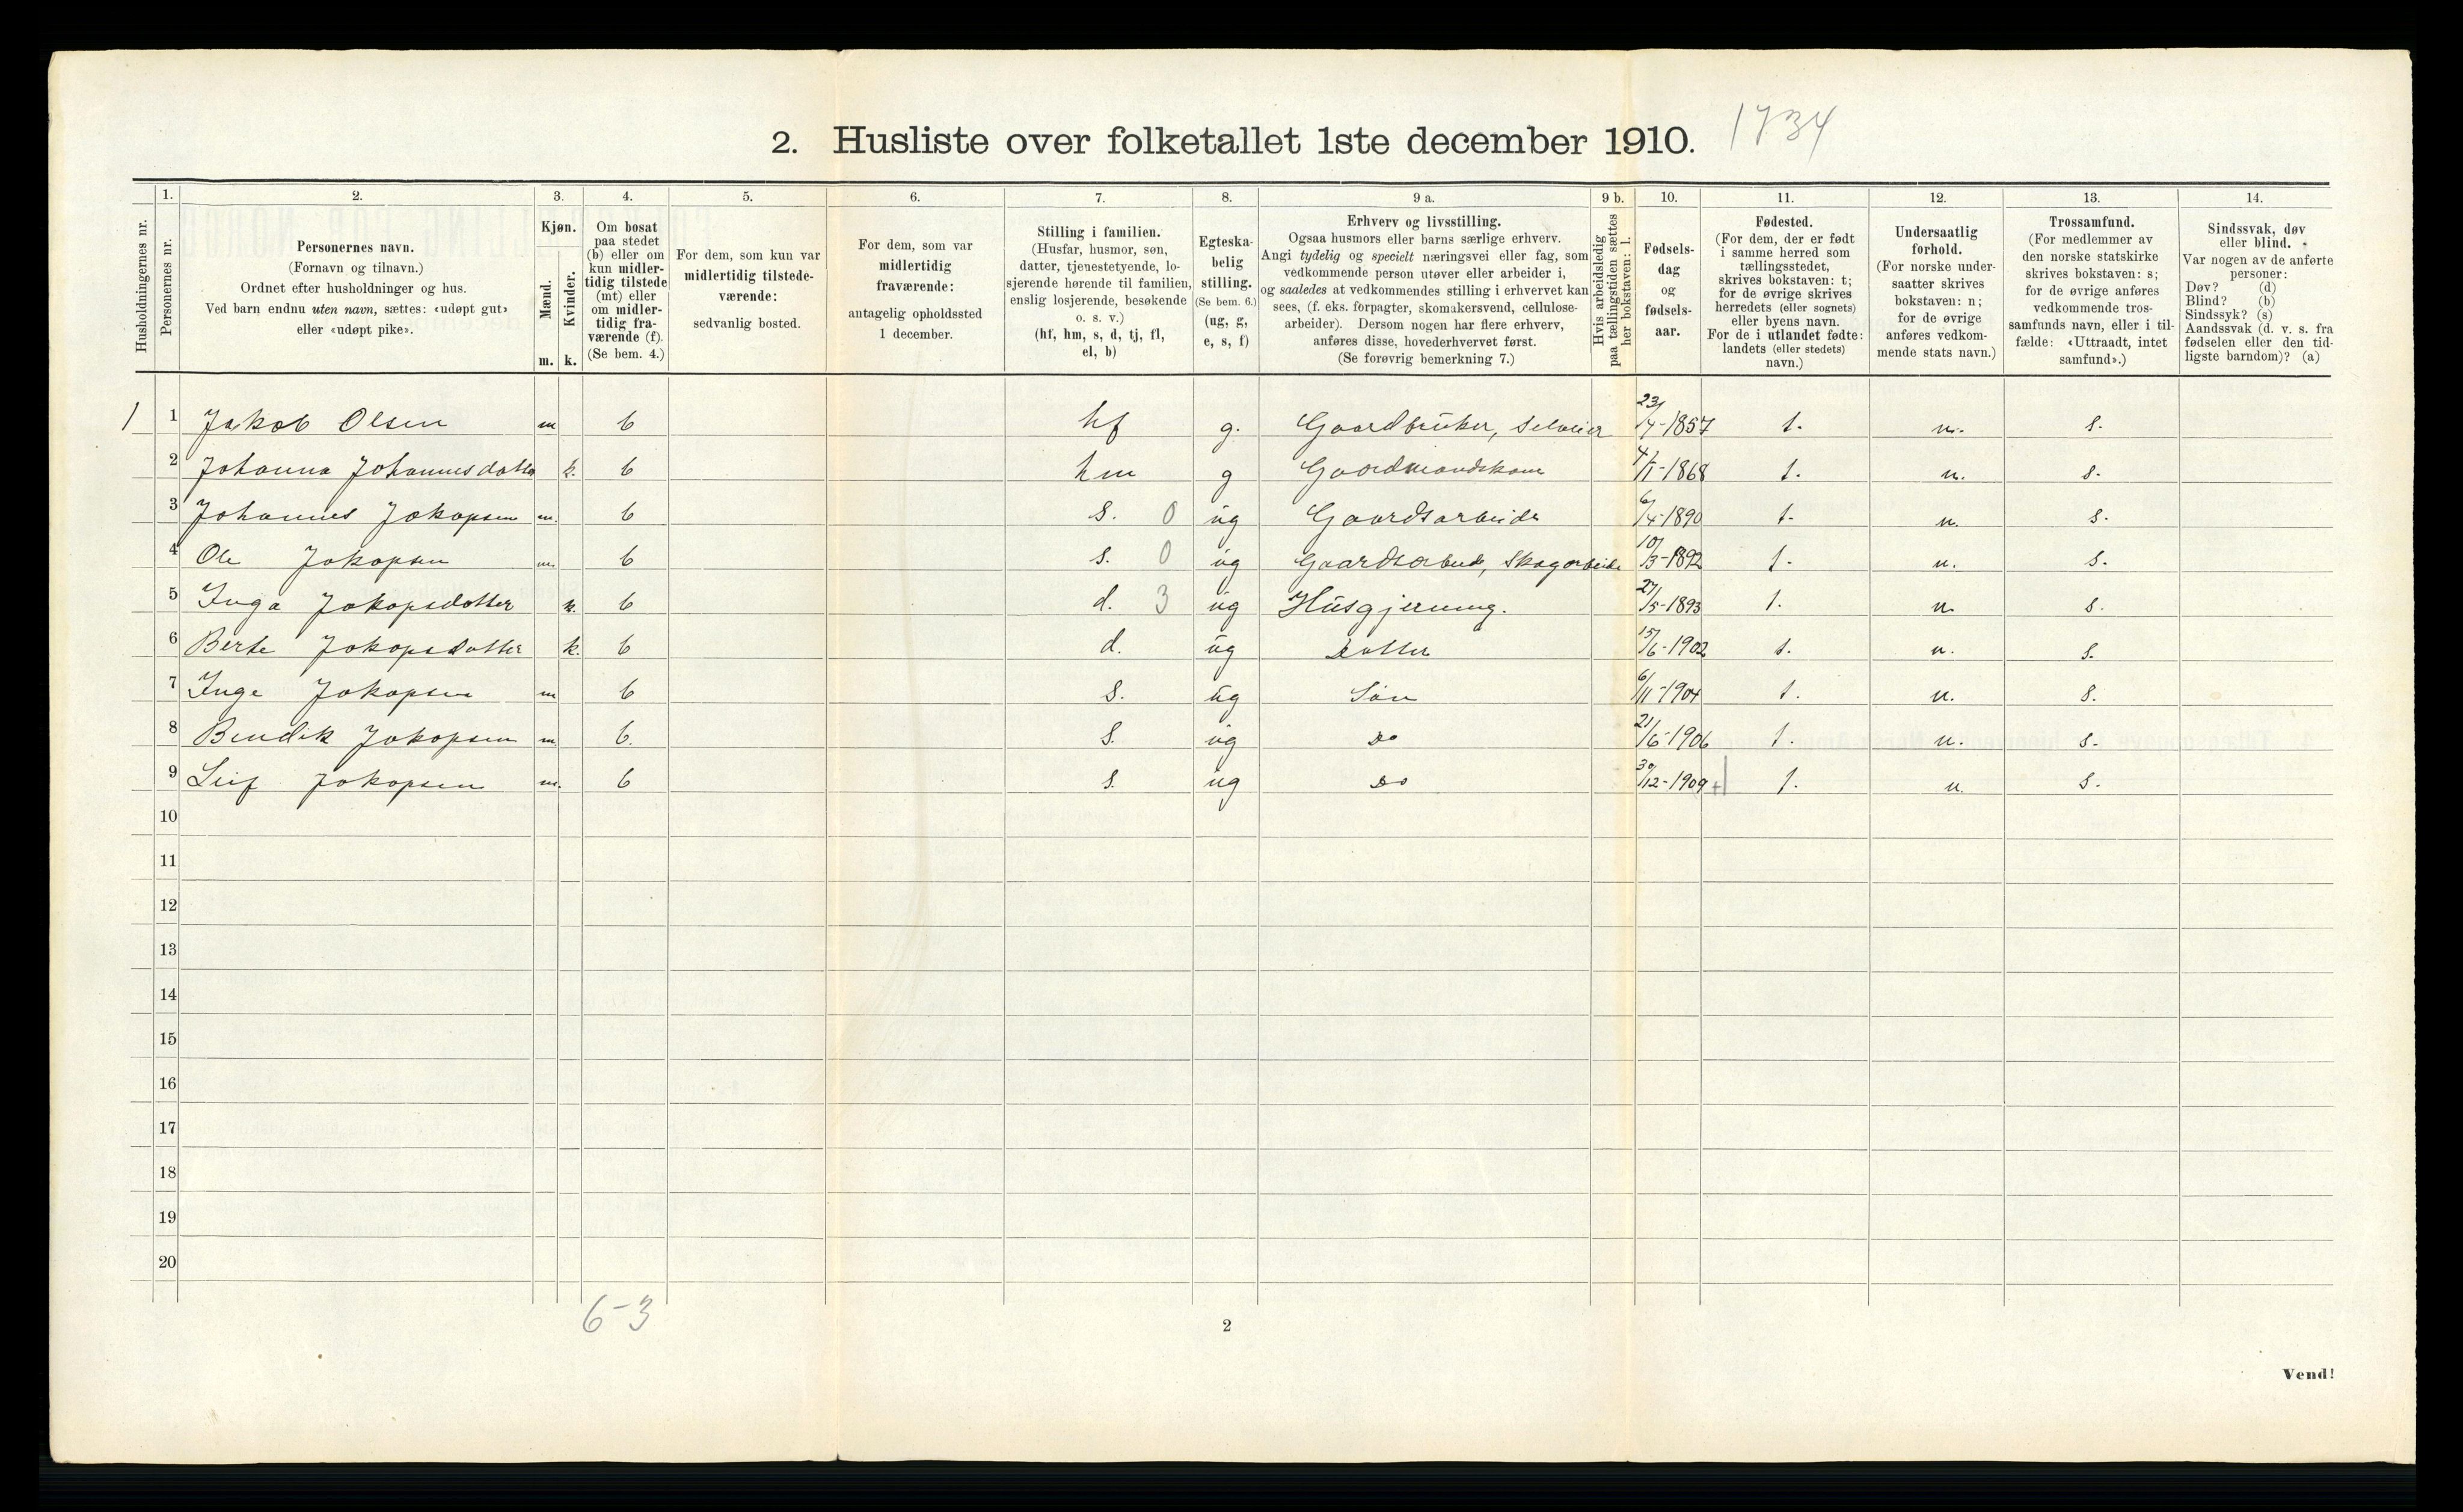 2. Husliste over folketallet 1ste december 1910. 1734
1. 2. 3. 4. 5. 6. 7. 8. 9 a. 9 b. 10. 11. 12. 13. 14.
Husholdningernes nr.
Personernes nr.
Personernes navn.
(Fornavn og tilnavn.)
Ordnet efter husholdninger og hus.
Ved barn endnu uten navn, sættes: «udøpt gut»
eller «udøpt pike».
Kjøn.
Mænd.
Kvinder.
m. k.
Om bosat
paa stedet
(b) eller om
kun midler-
tidig tilstede
(mt) eller
om midler-
tidig fra-
værende (f).
(Se bem. 4.)
For dem, som kun var
midlertidig tilstede-
værende:
sedvanlig bosted.
For dem, som var
midlertidig
fraværende:
antagelig opholdssted
1 december.
Stilling i familien.
(Husfar, husmor, søn,
datter, tjenestetyende, lo-
sjerende hørende til familien,
enslig losjerende, besøkende
o. s. v.)
(hf, hm, s, d, tj, fl,
el, b)
Egteska-
belig
stilling.
(Se bem. 6.)
(ug, g,
e, s, f)
Erhverv og livsstilling.
Ogsaa husmors eller barns særlige erhverv.
Angi tydelig og specielt næringsvei eller fag, som
vedkommende person utøver eller arbeider i,
og saaledes at vedkommendes stilling i erhvervet kan
sees, (f. eks. forpagter, skomakersvend, cellulose-
arbeider). Dersom nogen har flere erhverv,
anføres disse, hovederhvervet først.
(Se forøvrig bemerkning 7.)
Hvis arbeidsledig
paa tællingstiden sættes
her bokstaven: l.
Fødsels-
dag
og
fødsels-
aar.
Fødested.
(For dem, der er født
i samme herred som
tællingsstedet,
skrives bokstaven: t;
for de øvrige skrives
herredets (eller sognets)
eller byens navn.
For de i utlandet fødte:
landets (eller stedets)
navn.)
Undersaatlig
forhold.
(For norske under-
saatter skrives
bokstaven: n;
for de øvrige
anføres vedkom-
mende stats navn.)
Trossamfund.
(For medlemmer av
den norske statskirke
skrives bokstaven: s;
for de øvrige anføres
vedkommende tros-
samfunds navn, eller i til-
fælde: «Uttraadt, intet
samfund».)
Sindssvak, døv
eller blind.
Var nogen av de anførte
personer:
Døv? (d)
Blind? (b)
Sindssyk? (s)
Aandssvak (d. v. s. fra
fødselen eller den tid-
ligste barndom)? (a)
1 1 Jakob Olsen m b hf g. Gaardbruker, Selveier 23/4-1857 t. n. s.
2 Johanna Johannesdatter k. b hm g Gaardmandskone 4/1-1868 t. n. s.
3 Johannes Jakopsen m. b s. 0 ug Gaardsarbeide 6/4-1890 t. n. s.
4 Ole Jakopsen m. b s. 0 ug Gaardsarbeid, Skogarbeide 10/3-1892 t. n. s.
5 Inga Jakopsdatter k. b d. 3 ug Husgjerning. 27/5-1893 t. n. s.
6 Berte Jakopsdatter k. b d. ug Datter 15/6-1902 t. n. s.
7 Inge Jakopsen m b s. ug Søn 6/11-1904 t. n. s.
8 Bendik Jakopsen m b. s. ug Do 21/6-1906 t. n. s.
9 Leif Jakopsen m. b s. ug Do 30/12-1909 t. n. s.
10
11
12
13
14
15
16
17
18
19
20
6-3
2
Vend!